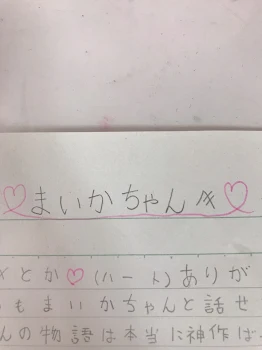 ♡まいかちゃん〆♡
〆とか♡(ハート)ありが
もまいかちゃんと話せ
んの物語は本当に神作ば